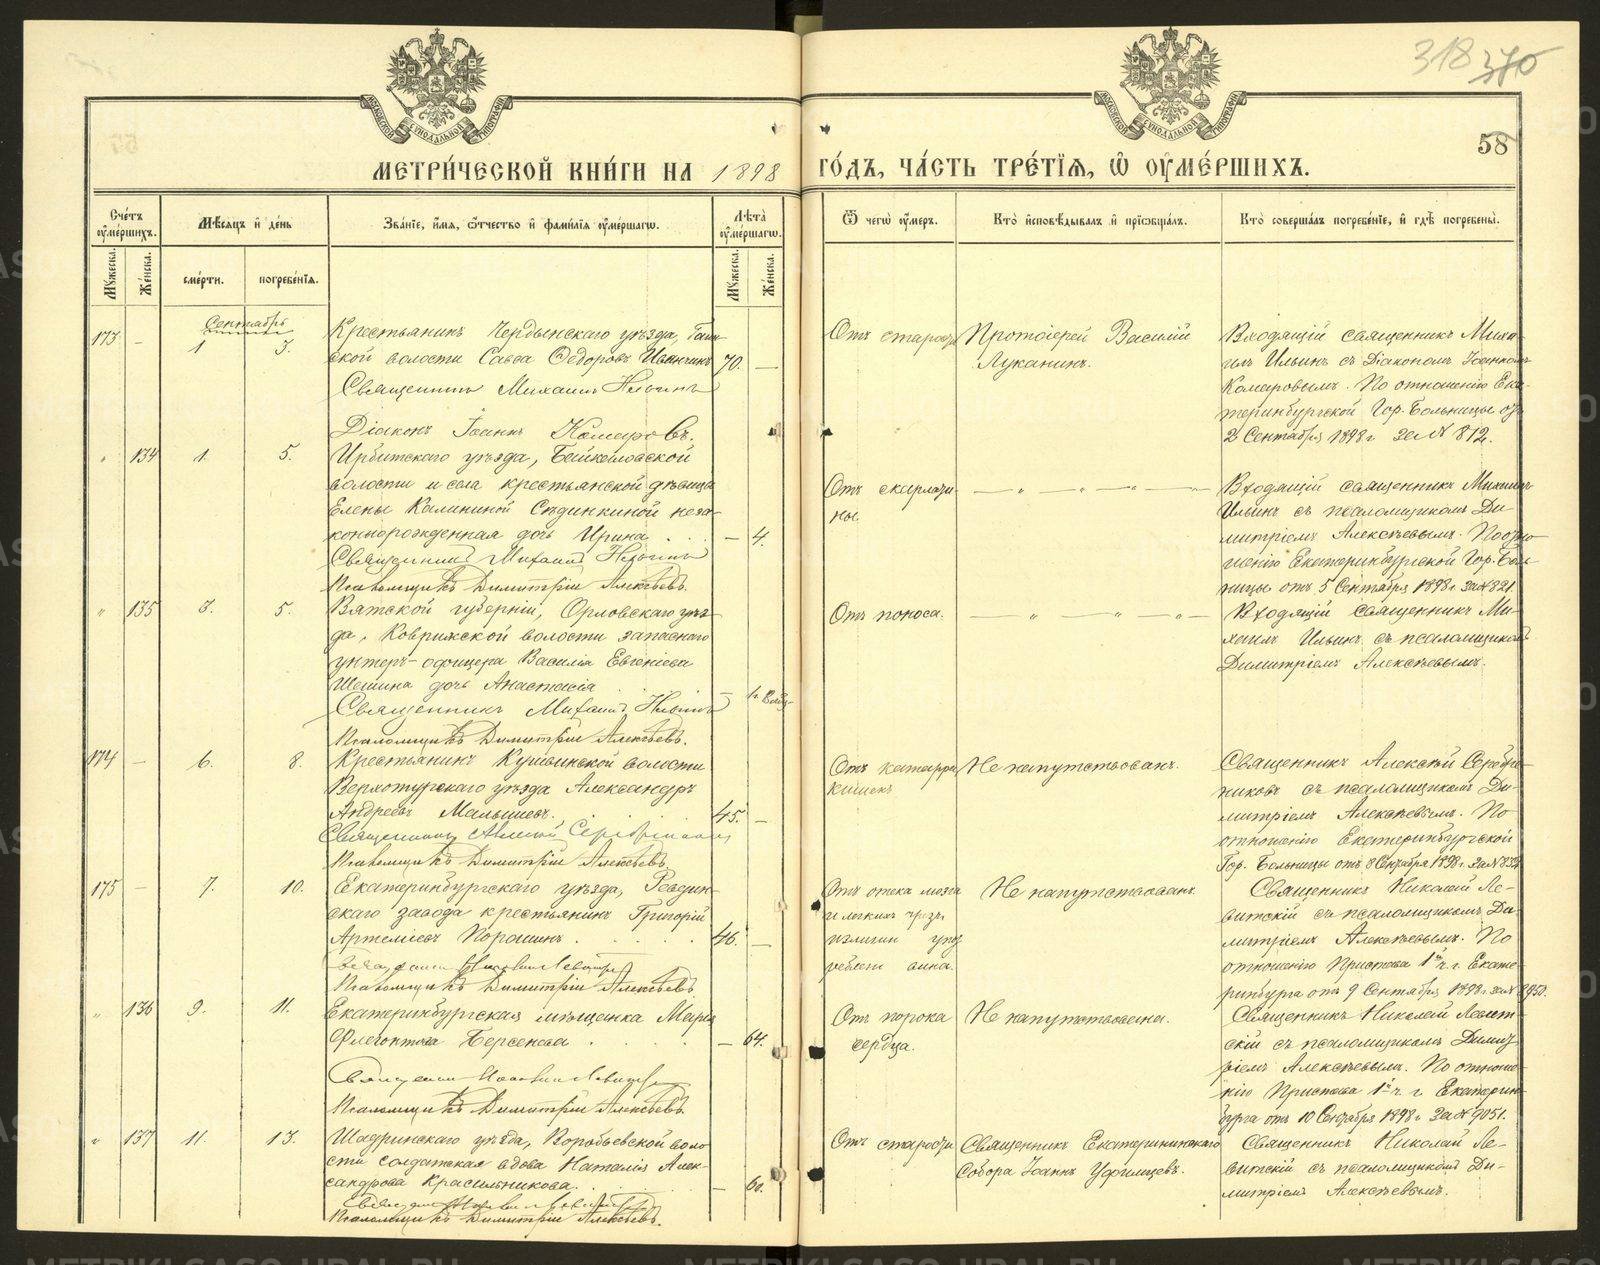 318 370
58
МЕТРИ́ЧЕСКОЙ КНИ́ГИ НА 1898 ГО́ДЪ, ЧА́СТЬ ТРЕ́ТІѦ, Ѡ҆ ОУ҆МЕ́РШИХЪ.
Сче́тъ оу҆ме́ршихъ.
Мѣ́сѧцъ и҆ де́нь
Зва́нїе, и҆́мѧ, ѻ҆́тчество и҆ фами́лїѧ оу҆ме́ршагѡ.
Лѣ́та оу҆ме́ршагѡ.
Ѿ чегѡ̀ оу҆́меръ.
Кто̀ и҆сповѣ́дывалъ и҆ прїѻбща́лъ.
Кто̀ соверша́лъ погребе́нїе, и҆ гдѣ̀ погребены̀.
Мꙋ́жеска.
Же́нска.
сме́рти.
погребе́нїѧ.
Мꙋ́жеска.
Же́нска.
Сентябрь
173 – 1 3.
Крестьянинъ Чердынскаго уѣзда, Гаин-
ской волости Савва Ѳедоровъ Иванчинъ 70. –
Священникъ Михаилъ Ильинъ
Діаконъ Іоаннъ Комаровъ.
Отъ старости
Протоіерей Василій
Луканинъ.
Входящій священникъ Миха-
илъ Ильинъ съ Діакономъ Іоанномъ
Комаровымъ. По отношенію Ека-
теринбургской Гор. Больницы отъ
2 Сентября 1898 г за № 812.
" 134 1. 5.
Ирбитскаго уѣзда, Байкаловской
волости и села крестьянской дѣвицы
Елены Калининой Сѣдинкиной неза-
коннорожденная дочь Ирина . . . – 4.
Священникъ Михаилъ Ильинъ
Псаломщикъ Димитрій Алексѣевъ.
Отъ скарлати-
ны.
— " — " — " — "
Входящій священникъ Михаилъ
Ильинъ съ псаломщикомъ Ди-
митріемъ Алексѣевымъ. По отно-
шенію Екатеринбургской Гор. Боль-
ницы отъ 5 Сентября 1898 г. за № 821.
" 135 3. 5.
Вятской губерніи, Орловскаго уѣз-
да, Коврижской волости запаснаго
унтеръ-офицера Василія Евгеніева
Шешина дочь Анастасія . . –
Священникъ Михаилъ Ильинъ
Псаломщикъ Димитрій Алексѣевъ.
Отъ поноса.
— " — " — " —
Входящій священникъ Ми-
хаилъ Ильинъ съ псаломщикомъ
Димитріемъ Алексѣевымъ.
174 – 6. 8.
Крестьянинъ Кушвинской волости
Верхотурскаго уѣзда Александръ
Андреевъ Малышевъ. . . . . 45. –
Священникъ Алексій Серебрениковъ
Псаломщикъ Димитрій Алексѣевъ.
Отъ катарра
кишекъ
Не напутствованъ.
Священникъ Алексій Серебре-
никовъ съ псаломщикомъ Ди-
митріемъ Алексѣевымъ. По
отношенію Екатеринбургской
Гор. Больницы отъ 8 Сентября 1898 г. за №
175 – 7. 10.
Екатеринбургскаго уѣзда, Ревдин-
скаго завода крестьянинъ Григорій
Артеміевъ Порошинъ . . . . . 46. –
Священникъ Николай Левитскій
Псаломщикъ Димитрій Алексѣевъ
Отъ отека мозга
и легкихъ чрезъ
излишн упот
ребленi вина.
Не напутствованъ
Священникъ Николай Ле-
витскій съ псаломщикомъ Ди-
митріемъ Алексѣевымъ. По
отношенію Пристава 1й ч. г. Екате-
ринбурга отъ 9 Сентября 1898 г. за №
" 136 9. 11.
Екатеринбургская мѣщанка Марія
Флегонтова Берсенева . . . . – 64.
Священникъ Николай Левитскій
Псаломщикъ Димитрій Алексѣевъ.
Отъ порока
сердца.
Не напутствована.
Священникъ Николай Левит-
скій съ псаломщикомъ Димит-
ріемъ Алексѣевымъ. По отноше-
нію Пристава 1й ч. г. Екатерин-
бурга отъ 10 Сентября 1898 г за № 9051.
" 137 11. 13.
Шадринскаго уѣзда, Воробьевской воло
сти солдатская вдова Наталія Алек-
сандрова Красильникова. . . . – 60.
Священникъ Николай Левитскій
Псаломщикъ Димитрій Алексѣевъ.
Отъ старости
Священникъ Екатерининскаго
Собора Іоаннъ Уфимцевъ.
Священникъ Николай Ле-
витскій съ псаломщикомъ Ди-
митріемъ Алексѣевымъ.